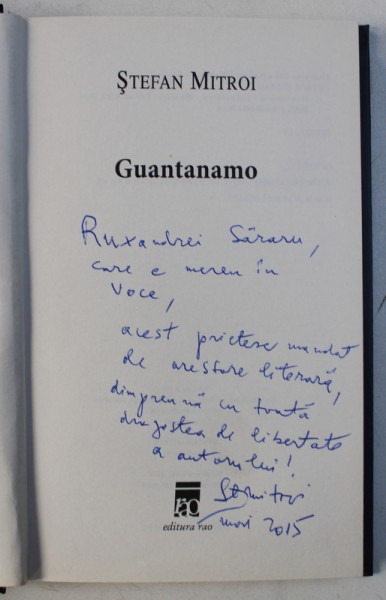 ŞTEFAN MITROI
Guantanamo
Ruxandrei Săraru,
care e mereu în
voce,
acest prietesc mandat
de arestare literară,
dimpreună cu toată
dragostea de libertate
a autorului!
StMitroi
mai 2015
rao
editura rao